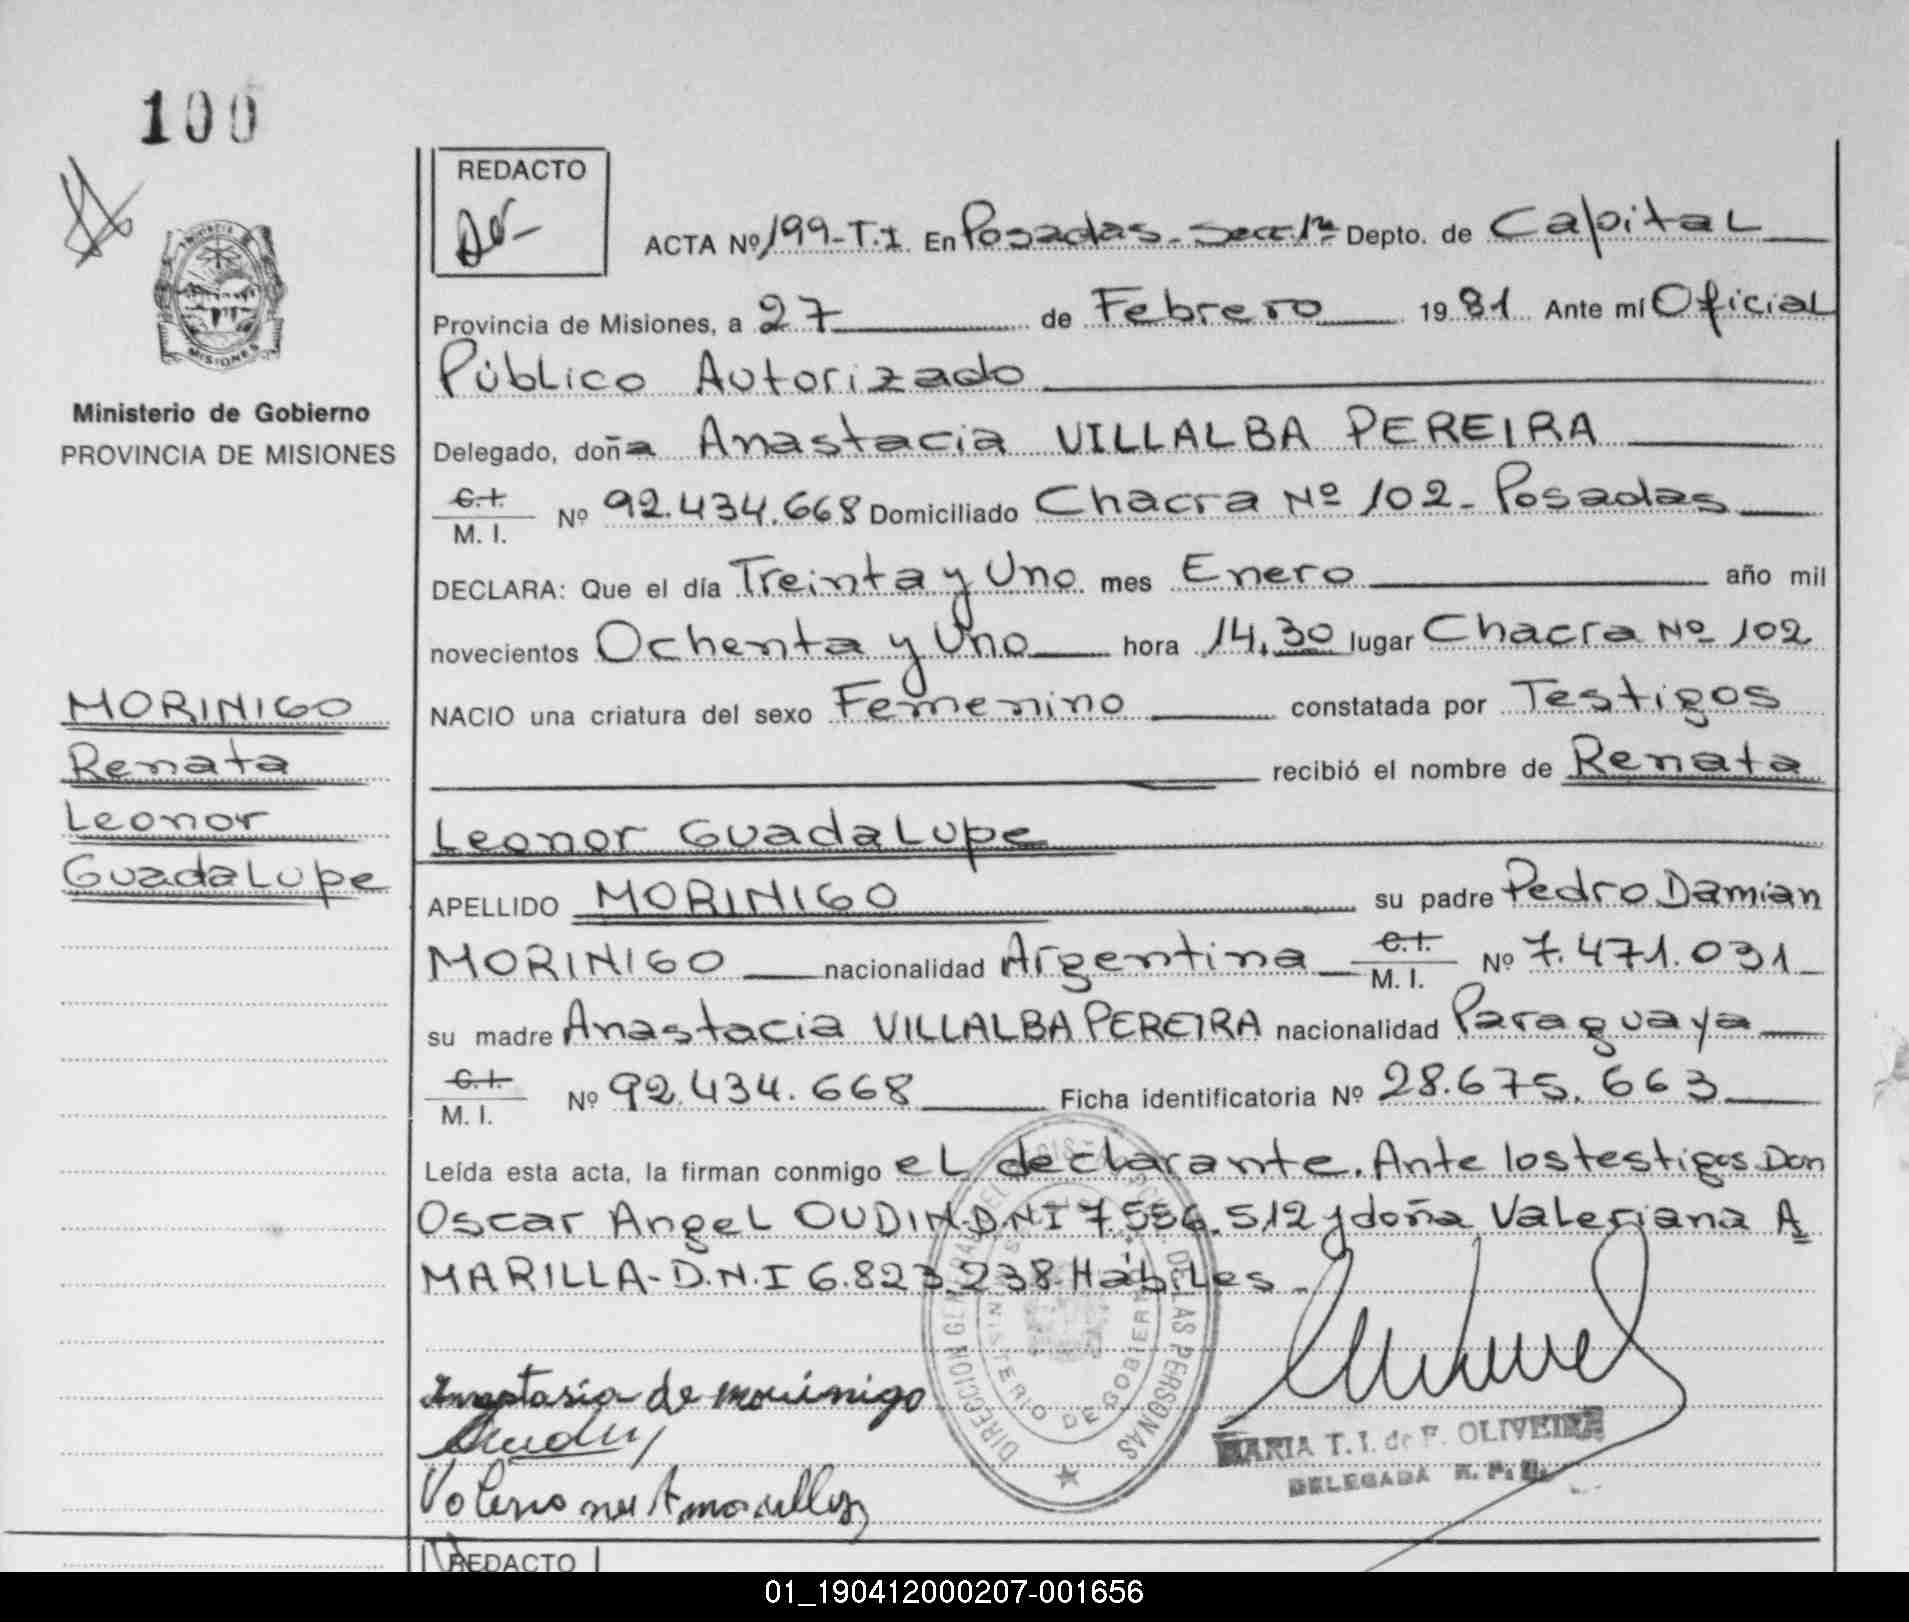 100
REDACTO
ACTA Nº 199-T.I. En Posadas - Secc. 1ra Depto. de Capital
Provincia de Misiones, a 27 de Febrero 1981 Ante mí Oficial
Público Autorizado
Delegado, doña Anastacia VILLALBA PEREIRA
C.I. M. I. Nº 92.434.668 Domiciliado Chacra Nº 102 - Posadas
DECLARA: Que el día Treinta y Uno mes Enero año mil
novecientos Ochenta y Uno hora 14,30 lugar Chacra Nº 102
NACIO una criatura del sexo Femenino constatada por Testigos
recibió el nombre de Renata
Leonor Guadalupe
APELLIDO MORINIGO su padre Pedro Damian
MORINIGO nacionalidad Argentina C.I. M. I. Nº 7.471.031
su madre Anastacia VILLALBA PEREIRA nacionalidad Paraguaya
C.I. M. I. Nº 92.434.668 Ficha identificatoria Nº 28.675.663
Leída esta acta, la firman conmigo el declarante. Ante los testigos Don
Oscar Angel OUDIN-D.N.I 7.556.512 y doña Valeriana A
MARILLA-D.N.I 6.823.238 Hábiles.
PROVINCIA
MISIONES
Ministerio de Gobierno
PROVINCIA DE MISIONES
MORINIGO
Renata
Leonor
Guadalupe
Anastasia de morinigo
Valeriana Amarilla
DIRECCION GENERAL DEL REGISTRO DE LAS PERSONAS
MINISTERIO DE GOBIERNO
MARIA T. I. de F. OLIVEIRA
DELEGADA R. P.
REDACTO
01_190412000207-001656